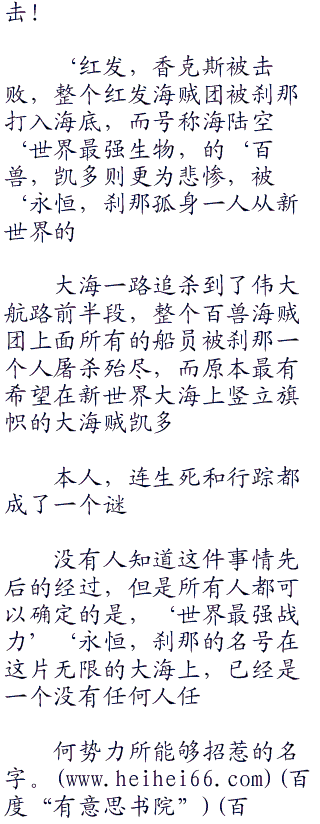 击！
‘红发，香克斯被击
败，整个红发海贼团被刹那
打入海底，而号称海陆空
‘世界最强生物，的‘百
兽，凯多则更为悲惨，被
‘永恒，刹那孤身一人从新
世界的
大海一路追杀到了伟大
航路前半段，整个百兽海贼
团上面所有的船员被刹那一
个人屠杀殆尽，而原本最有
希望在新世界大海上竖立旗
帜的大海贼凯多
本人，连生死和行踪都
成了一个谜
没有人知道这件事情先
后的经过，但是所有人都可
以确定的是，‘世界最强战
力’‘永恒，刹那的名号在
这片无限的大海上，已经是
一个没有任何人任
何势力所能够招惹的名
字。(www.heihei66.com)(百
度“有意思书院”)(百